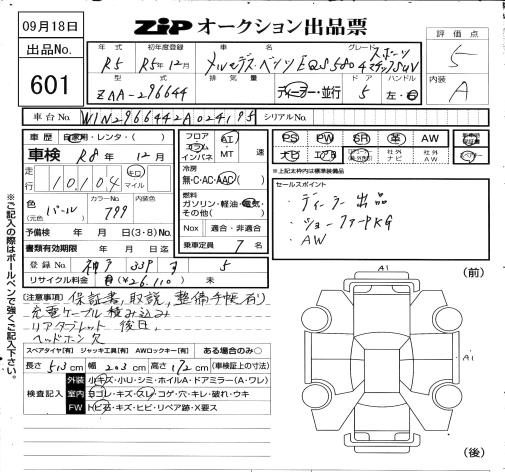 09月18日
ZIP オークション出品票
評価点
5
出品No.
601
年式
初年度登録
車名
グレード
R5
R5年12月
メルセデス・ベンツ EQS 580 4マチックSUV
スポーツ
型式
排気量
ドア
ハンドル
ZAA-296644
ディーラー・並行
5
左・右
内装
A
車台No.
W1N2966442A024195
シリアルNo.
車歴
自家用・レンタ・( )
車検 R8年 12月
走行
10,104
キロ
マイル
色
(元色)
パール
カラーNo.
799
内装色
予備検 年 月 日(3・8)No.
書類有効期限 年 月 日迄
登録No.
神戸 339 す 5
リサイクル料金
有(¥26,110) 未
フロア
コラム
インパネ
AT
MT
速
冷房
無・C・AC・AAC( )
燃料
ガソリン・軽油・電気・
その他( )
Nox
適合・非適合
乗車定員 7 名
PS
PW
SR
革
AW
ナビ
エアB
社外
ナビ
社外
AW
※上記太枠内は標準装備品
セールスポイント
・ディーラー出品
・ショーファーPKG
・AW
(注意事項)保証書,取説,整備手帳有り
充電ケーブル積み込み
リアタブレット 後日,
ヘッドホン欠
スペアタイヤ[有] ジャッキ工具[有] AWロックキー[有] ある場合のみ○
長さ 513 cm 幅 203 cm 高さ 172 cm (車検証上の寸法)
検査記入
外装
小キズ・小U・シミ・ホイルA・ドアミラー(A・ワレ)
室内
ヨゴレ・キズ・スレ・コゲ・穴・キレ・破れ・ウキ
FW
トビ石・キズ・ヒビ・リペア跡・X要ス
※ご記入の際はボールペンで強くご記入下さい。
A1
(前)
A1
(後)